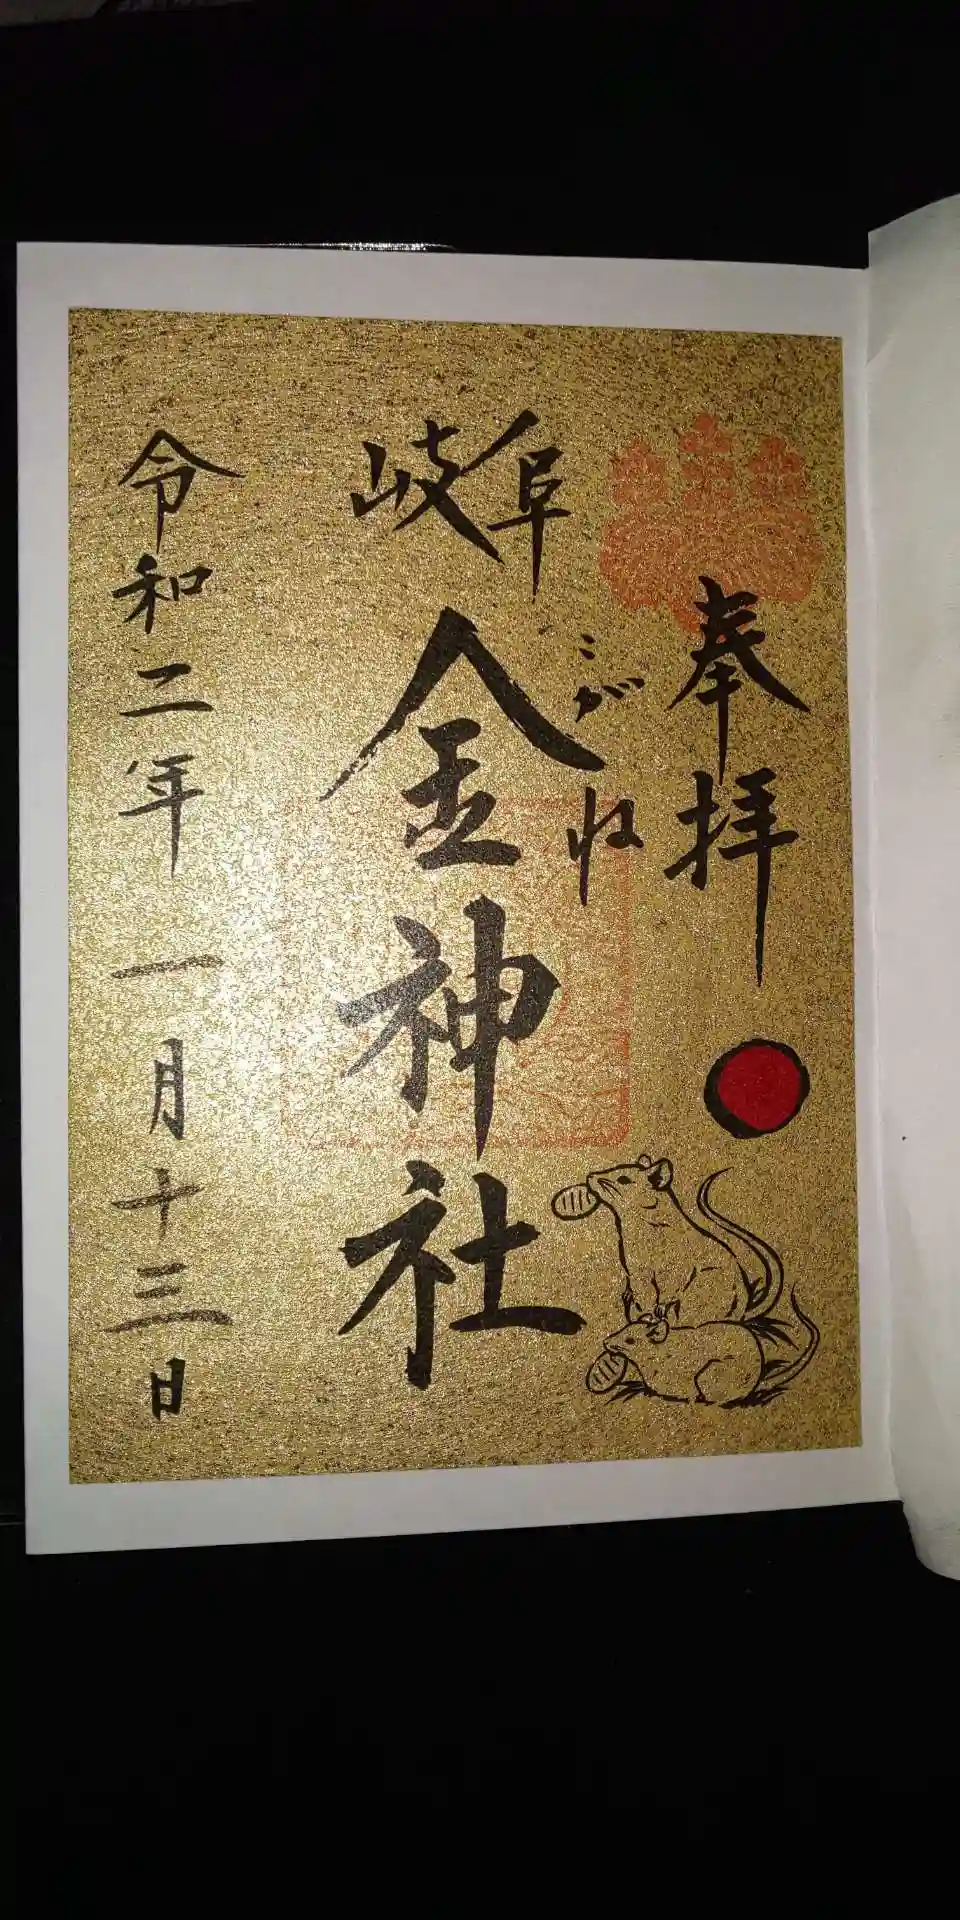 奉拝
岐阜
こがね
金神社
令和二年一月十三日